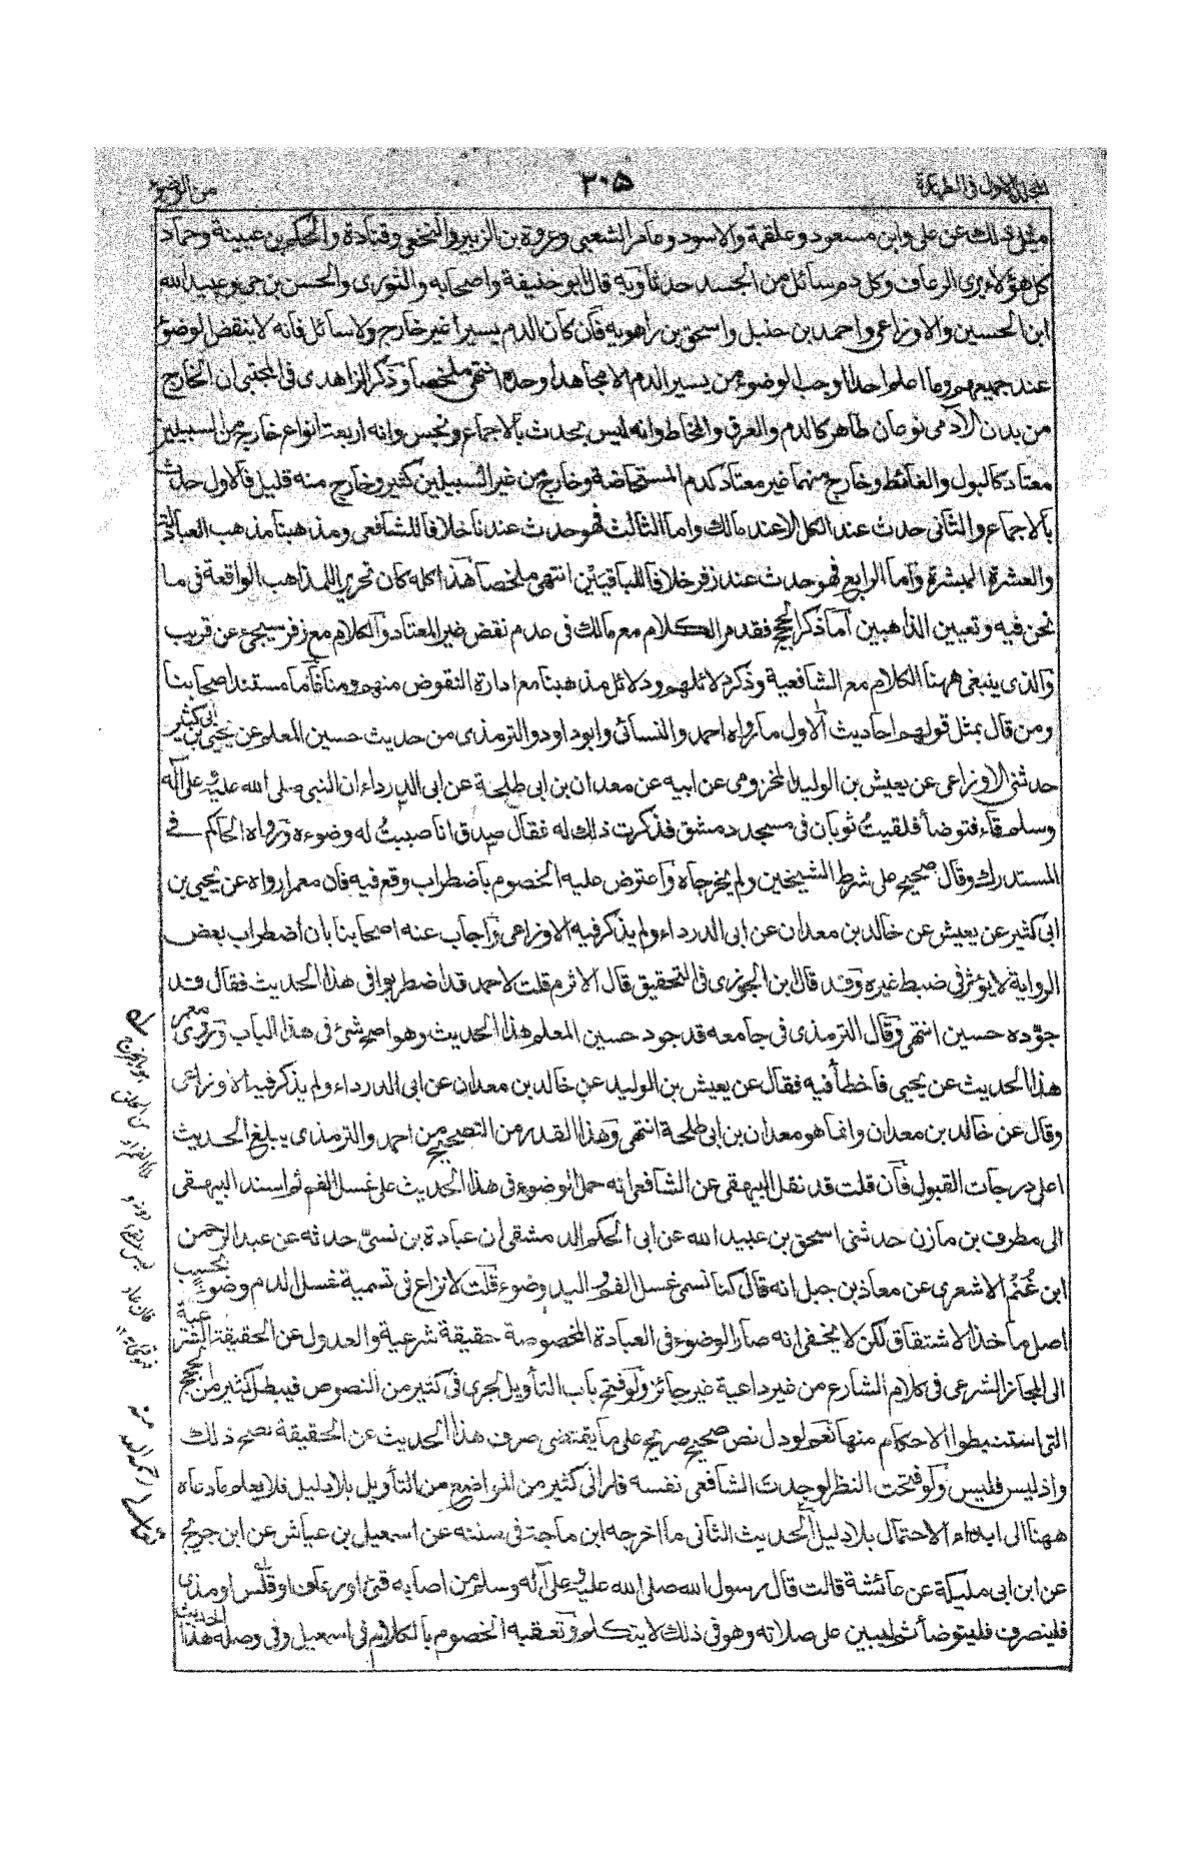 المجلد الاول فى الطهارة
٣٠٥
من الوضوء
مثل ذلك عن على وابن مسعود وعلقمة والاسود وعامر الشعبى وعروة بن الزبير والنخعى وقتادة والحكم بن عيينة وحماد
كل هؤلاء يرى الرعاف وكل دم سائل من الجسد حدثا وبه قال ابو حنيفة واصحابه والثورى والحسن بن حى وعبيد الله
ابن الحسين والاوزاعى واحمد بن حنبل واسحق بن راهويه فان كان الدم يسيرا غير خارج ولا سائل فانه لا ينقض الوضوء
عند جميعهم وما اعلم احدا اوجب الوضوء من يسير الدم الا مجاهدا وحده انتهى ملخصا وذكر الزاهدى فى المجتبى ان الخارج
من بدن الآدمى نوعان طاهر كالدم والعرق والمخاط وانه ليس بحدث بالاجماع ونجس وانه اربعة انواع خارج من السبيلين
معتاد كالبول والغائط وخارج منهما غير معتاد كدم المستحاضة وخارج من غير السبيلين كثير وخارج منه قليل فالاول حدث
بالاجماع والثانى حدث عند الكل الا عند مالك واما الثالث فهو حدث عندنا خلافا للشافعى ومذهبنا مذهب العبادلة
والعشرة المبشرة واما الرابع فهو حدث عند زفر خلافا للباقيين انتهى ملخصا هذا كله كان تحرير المذاهب الواقعة فى ما
نحن فيه وتعيين الذاهبين اما ذكر الحجج فقد مر الكلام مع مالك فى عدم نقض غير المعتاد والكلام مع زفر سيجئ عن قريب
والذى ينبغى ههنا الكلام مع الشافعية وذكر دلائلهم ودلائل مذهبنا مع ادارة النقوض منهم ومنا فاما مستند اصحابنا
ومن قال بمثل قولهم احاديث الاول ما رواه احمد والنسائى وابوداود والترمذى من حديث حسين المعلم عن يحيى بن ابى كثير
حدثنى الاوزاعى عن يعيش بن الوليد المخزومى عن ابيه عن معدان بن ابى طلحة عن ابى الدرداء ان النبى صلى الله عليه وعلى آله
وسلم قاء فتوضأ فلقيت ثوبان فى مسجد دمشق فذكرت ذلك له فقال صدق انا صببت له وضوءه ورواه الحاكم فى
المستدرك وقال صحيح على شرط الشيخين ولم يخرجاه واعترض عليه الخصوم باضطراب وقع فيه فان معمرا رواه عن يحيى بن
ابى كثير عن يعيش عن خالد بن معدان عن ابى الدرداء ولم يذكر فيه الاوزاعى واجاب عنه اصحابنا بان اضطراب بعض
الرواية لا يؤثر فى ضبط غيره وقد قال ابن الجوزى فى التحقيق قال الاثرم قلت لاحمد قد اضطربوا فى هذا الحديث فقال قد
جوّده حسين انتهى وقال الترمذى فى جامعه قد جود حسين المعلم هذا الحديث وهو اصح شئ فى هذا الباب وروى معمر
هذا الحديث عن يحيى فاخطأ فيه فقال عن يعيش بن الوليد عن خالد بن معدان عن ابى الدرداء ولم يذكر فيه الاوزاعى
وقال عن خالد بن معدان وانما هو معدان بن ابى طلحة انتهى وهذا القدر من التصحيح من احمد والترمذى يبلغ الحديث
اعلى درجات القبول فان قلت قد نقل البيهقى عن الشافعى انه حمل الوضوء فى هذا الحديث على غسل الفم ثم اسند البيهقى
الى مطرف بن مازن حدثنى اسحق بن عبيد الله عن ابى الحكم الدمشقى ان عبادة بن نسىّ حدثه عن عبد الرحمن
ابن غُنْم الاشعرى عن معاذ بن جبل انه قال كنا نسمى غسل الفم واليد وضوء قلت لا نزاع فى تسمية غسل الدم وضوءً بحسب
اصل ماخذ الاشتقاق لكن لا يخفى انه صار الوضوء فى العبادة المخصوصة حقيقة شرعية والعدول عن الحقيقة الشرعية
الى المجاز الشرعى فى كلام الشارع من غير داعية غير جائز ولو فتح باب التأويل لجرى فى كثير من النصوص فيبطل كثير من الحجج
التى استنبطوا الاحكام منها نعم لو دل نص صحيح صريح على ما يقتضى صرف هذا الحديث عن الحقيقة لصح ذلك
واذ ليس فليس ولو فتحت النظر لوجدت الشافعى نفسه فارا فى كثير من المواضع من التأويل بلا دليل فلا يعلم ما دعاه
ههنا الى ابداء الاحتمال بلا دليل الحديث الثانى ما اخرجه ابن ماجة فى سننه عن اسمعيل بن عياش عن ابن جريج
عن ابن ابى مليكة عن عائشة قالت قال رسول الله صلى الله عليه وعلى آله وسلم من اصابه قئ او رعاف او قلس او مذى
فلينصرف فليتوضأ ثم ليبن على صلاته وهو فى ذلك لا يتكلم وتعقبه الخصوم بالكلام فى اسمعيل وفى وصله هذا الحديث